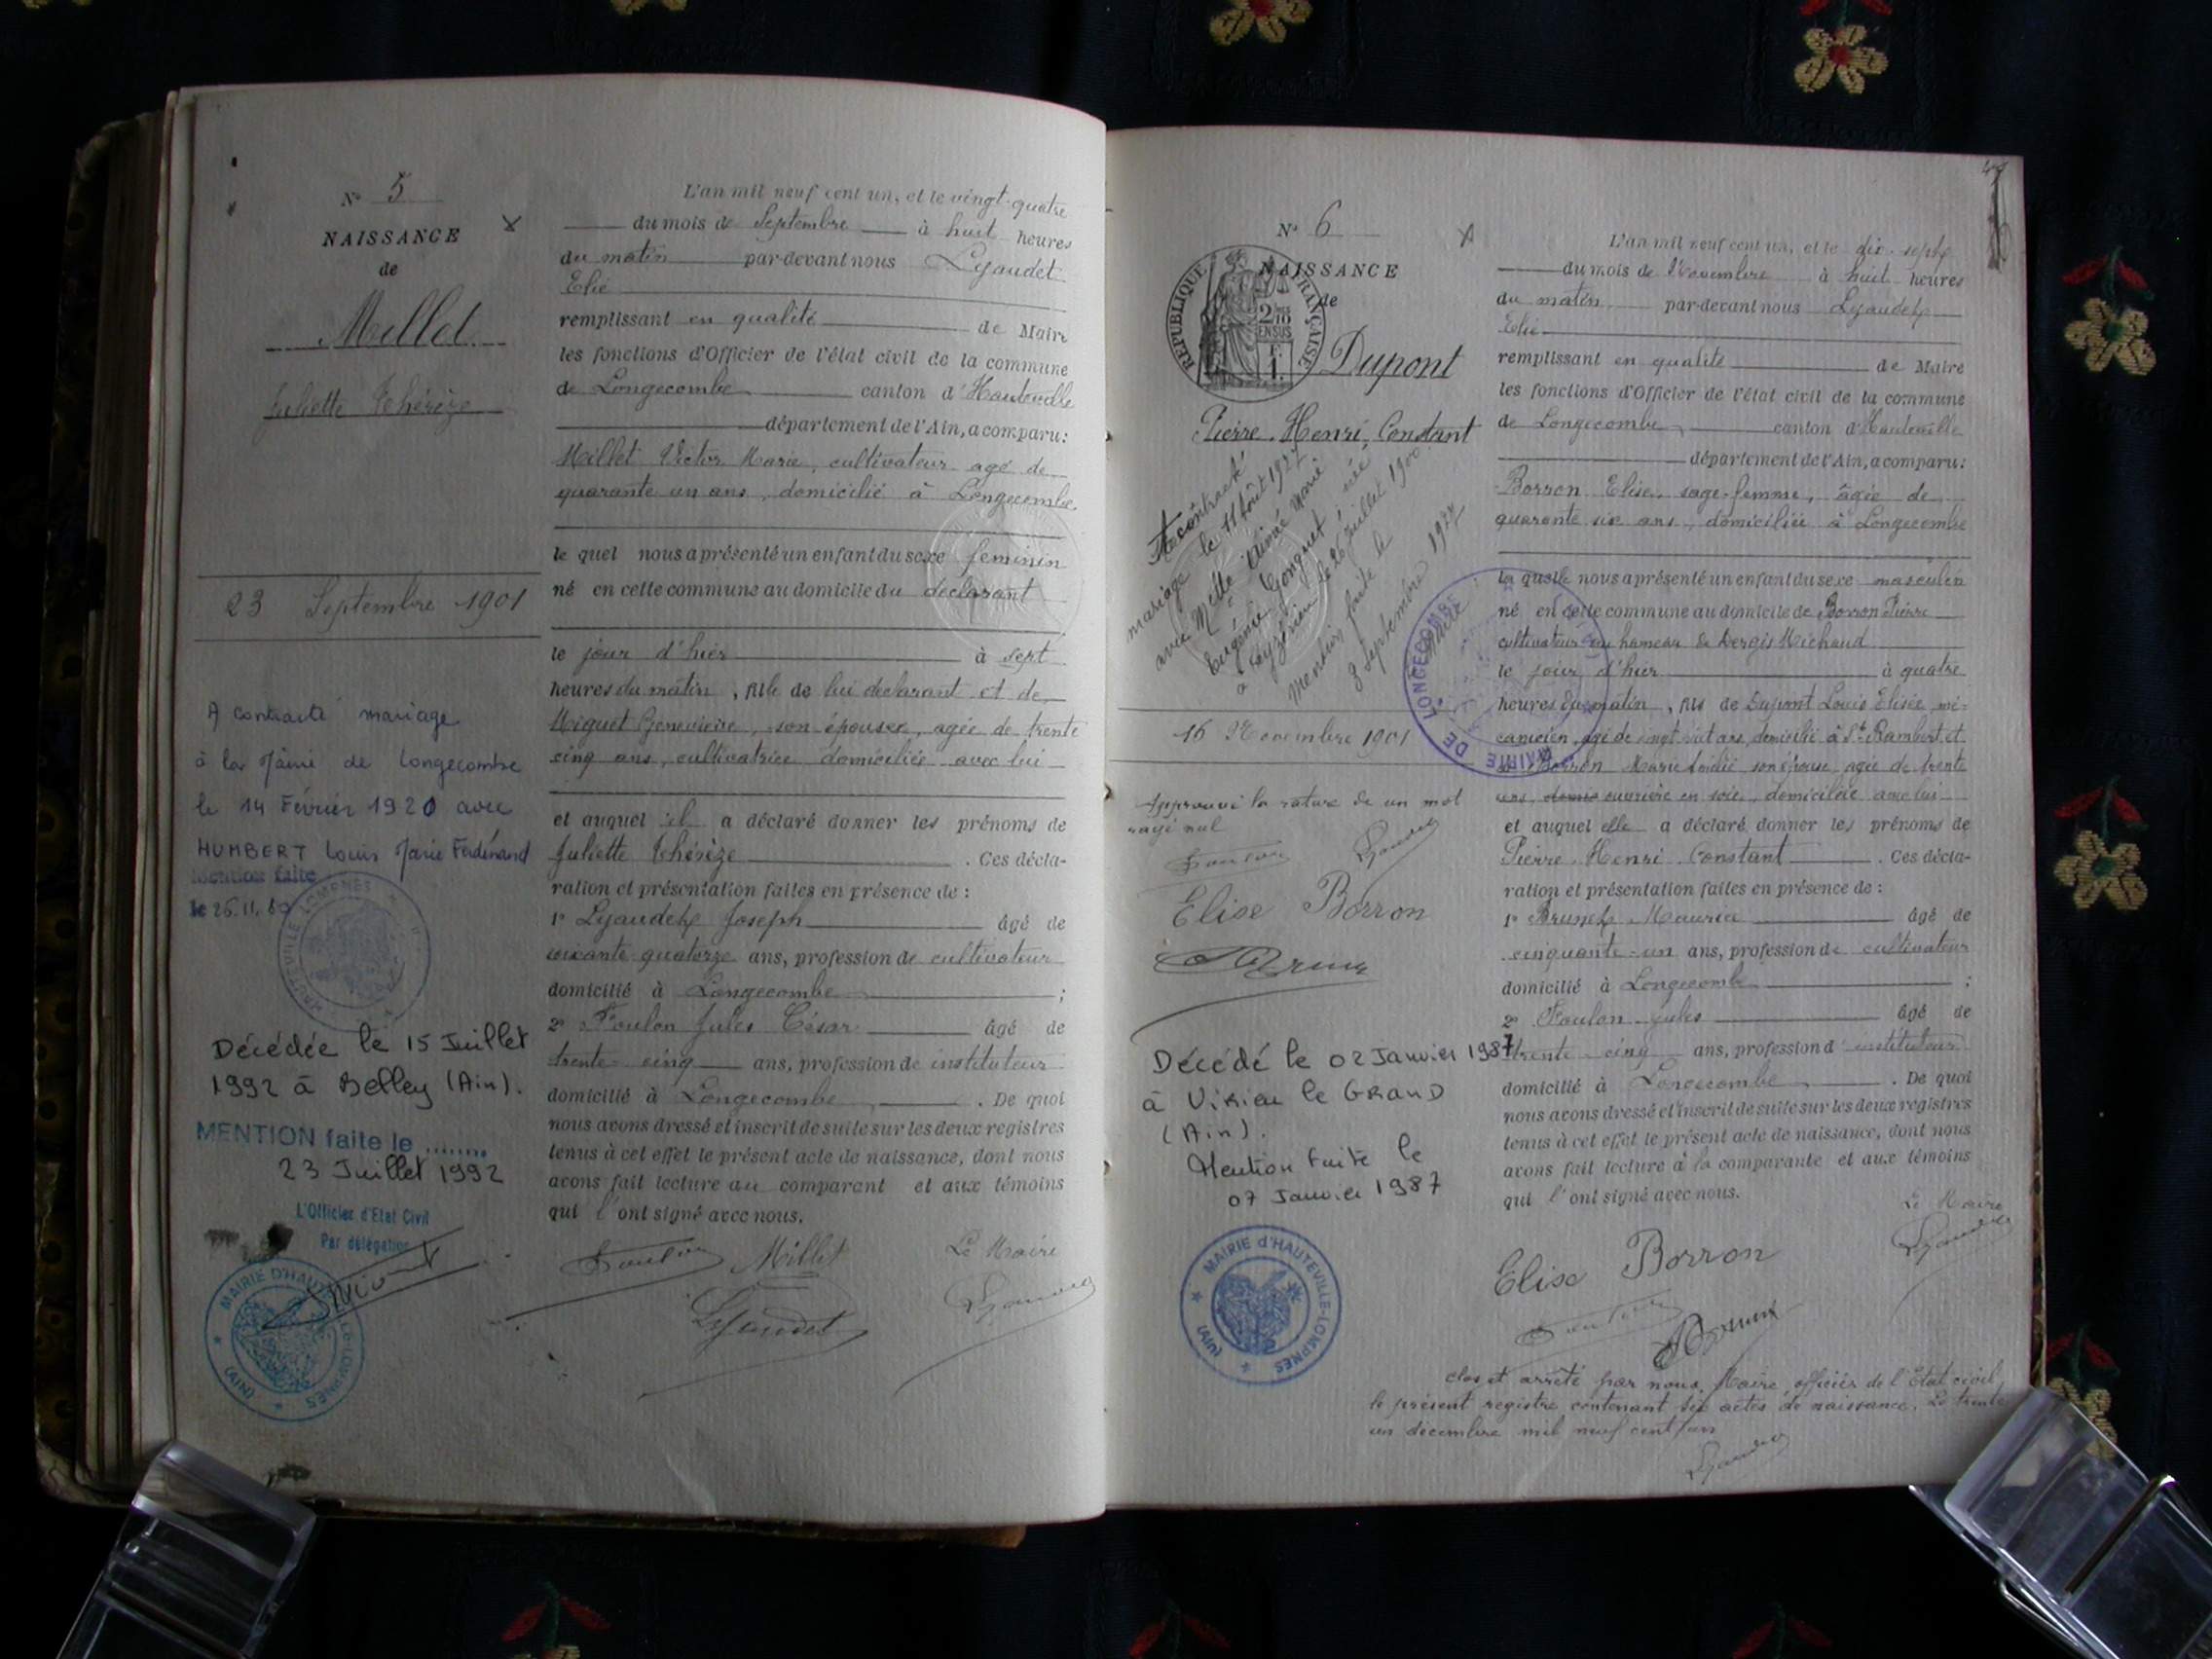 N° 5
NAISSANCE
de
Millet
Juliette Thérèze
23 Septembre 1901
A contracté mariage
à la Mairie de Longecombe
le 14 Février 1920 avec
HUMBERT Louis Marie Ferdinand
mention faite
le 26.11.80
HAUTEVILLE LOMPNES
Décédée le 15 Juillet
1992 à Belley (Ain).
MENTION faite le ........
23 Juillet 1992
L'Officier d'Etat Civil
Par délégation
MAIRIE D'HAUTEVILLE-LOMPNES
(AIN)
L'an mil neuf cent un, et le vingt-quatre
du mois de Septembre à huit heures
du matin par-devant nous Lyaudet
Elie
remplissant en qualité de Maire
les fonctions d'Officier de l'état civil de la commune
de Longecombe canton d'Hauteville
département de l'Ain, a comparu:
Millet Victor Marie, cultivateur agé de
quarante un ans, domicilié à Longecombe
le quel nous a présenté un enfant du sexe feminin
né en cette commune au domicile du déclarant
le jour d'hier à sept
heures du matin, fille de lui declarant et de
Miguet Genevieve, son épouse, agée de trente
cinq ans, cultivatrice domiciliée avec lui
et auquel il a déclaré donner les prénoms de
Juliette Thérèze. Ces décla-
ration et présentation faites en présence de :
1° Lyaudet Joseph âgé de
soixante quatorze ans, profession de cultivateur
domicilié à Longecombe ;
2° Foulon Jules César âgé de
trente cinq ans, profession de instituteur
domicilié à Longecombe. De quoi
nous avons dressé et inscrit de suite sur les deux registres
tenus à cet effet le présent acte de naissance, dont nous
avons fait lecture au comparant et aux témoins
qui l'ont signé avec nous.
Foulon Millet Le Maire
Lyaudet Lyaudet
N° 6
RÉPUBLIQUE FRANÇAISE
NAISSANCE
de
2/10
EN SUS
Dupont
Pierre Henri Constant
A contracté
mariage le 11 Août 1927
avec Melle Aimée Marie
Eugénie Gonguet, née
à le 26 juillet 1900.
Mention faite le
8 septembre 1927
MAIRIE DE LONGECOMBE
16 Novembre 1901
Approuvé la rature de un mot
rayé nul
Foulon Lyaudet
Elise Borron
Brunet
Décédé le 02 Janvier 1987
à Virieu le GRAND
(Ain).
Mention faite le
07 Janvier 1987
MAIRIE d'HAUTEVILLE-LOMPNES
(AIN)
L'an mil neuf cent un, et le dix-sept
du mois de Novembre à huit heures
du matin par-devant nous Lyaudet
Elie
remplissant en qualité de Maire
les fonctions d'Officier de l'état civil de la commune
de Longecombe canton d'Hauteville
département de l'Ain, a comparu:
Borron Elise, sage-femme, âgée de
quarante six ans, domiciliée à Longecombe
la quelle nous a présenté un enfant du sexe masculin
né en cette commune au domicile de Borron Pierre
cultivateur au hameau de Dergis Michaud
le jour d'hier à quatre
heures du matin, fils de Dupont Louis Elisée mé-
canicien, agé de vingt sept ans, domicilié à St Rambert et
de Borron Marie son épouse agée de trente
ans, ouvrière en soie, domiciliée avec lui
et auquel elle a déclaré donner les prénoms de
Pierre Henri Constant. Ces décla-
ration et présentation faites en présence de :
1° Brunet Maurice âgé de
cinquante-un ans, profession de cultivateur
domicilié à Longecombe ;
2° Foulon Jules âgé de
trente-cinq ans, profession d'instituteur
domicilié à Longecombe. De quoi
nous avons dressé et inscrit de suite sur les deux registres
tenus à cet effet le présent acte de naissance, dont nous
avons fait lecture à la comparante et aux témoins
qui l'ont signé avec nous.
Le Maire
Elise Borron Lyaudet
Foulon Brunet
Clos et arrêté par nous, Maire, officier de l'Etat civil,
le présent registre contenant six actes de naissance. Le trente
un décembre mil neuf cent un
Lyaudet